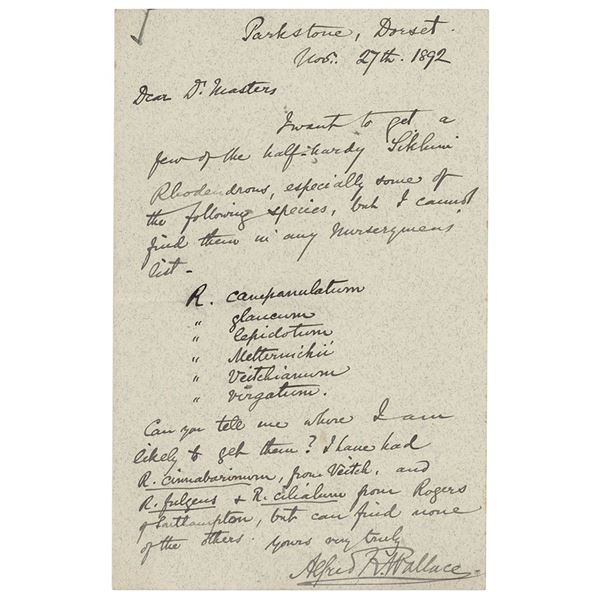 Parkstone, Dorset.
Nov. 27th. 1892
Dear Dr. Masters
I want to get a
few of the half-hardy Sikkim
Rhodendrons, especially some of
the following species, but I cannot
find them in any Nurserymens'
list -
R. campanulatum
" glaucum
" lepidotum
" Metternichii
" Veitchianum
" virgatum.
Can you tell me where I am
likely to get them? I have had
R. cinnabarinum, from Veitch, and
R. fulgens & R. ciliatum from Rogers
of Southampton, but can find none
of the others. Yours very truly
Alfred R. Wallace.